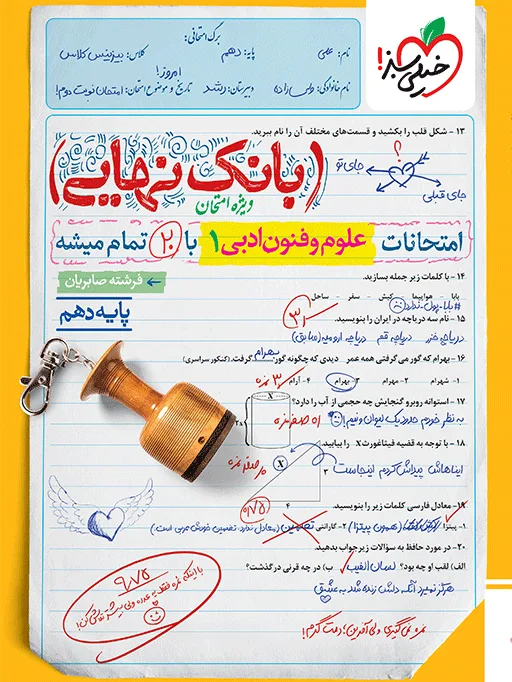 خیلی سبز!
برگ امتحانی:
نام: علی پایه: دهم کلاس: بیزینس کلاس
امروز!
نام خانوادگی: ولی‌زاده دبیرستان: رشد تاریخ و موضوع امتحان: امتحان نوبت دوم!
۱۳ - شکل قلب را بکشید و قسمت‌های مختلف آن را نام ببرید.
؟
جای تو
جای قبلی
(بانک نهایی)
ویژه امتحان
امتحانات علوم و فنون ادبی ۱ با ۲۰ تمام میشه
فرشته صابریان
پایه دهم
۱۴ - با کلمات زیر جمله بسازید.
بابا - هواپیما - کیش - سفر - ساحل
#بابا_پول_ندارد
۱۵ - نام سه دریاچه در ایران را بنویسید.
۳
دریاچه خزر دریاچه قم دریاچه ارومیه (سابق)
۱۶ - بهرام که گور می‌گرفتی همه عمر دیدی که چگونه گور بهرام گرفت. (کنکور سراسری)
۱- شهرام ۲- مهرام ۳- بهرام ۴- آرام
۳ نمره
۱۷ - استوانه روبرو گنجایش چه حجمی از آب را دارد؟
به نظر خودم حدود یک لیوان و نیم!
۱۸ - با توجه به قضیه فیثاغورث X را بیابید.
X
۳
۴
ایناهاش پیداش کردم اینجاست
۱۹ - معادل فارسی کلمات زیر را بنویسید.
۱- پیتزا (همون پیتزا) ۲- گارانتی تضمین (معادل ندارد، تضمین خودش عربی است.)
۲۰ - در مورد حافظ به سؤالات زیر جواب بدهید.
الف) لقب او چه بود؟ لسان الغیب ب) در چه قرنی درگذشت؟
هرگز نمیرد آنکه دلش زنده شد به عشق
۹/۷۵
نمره نمی‌گیری ولی آفرین؛ دمت گرم!